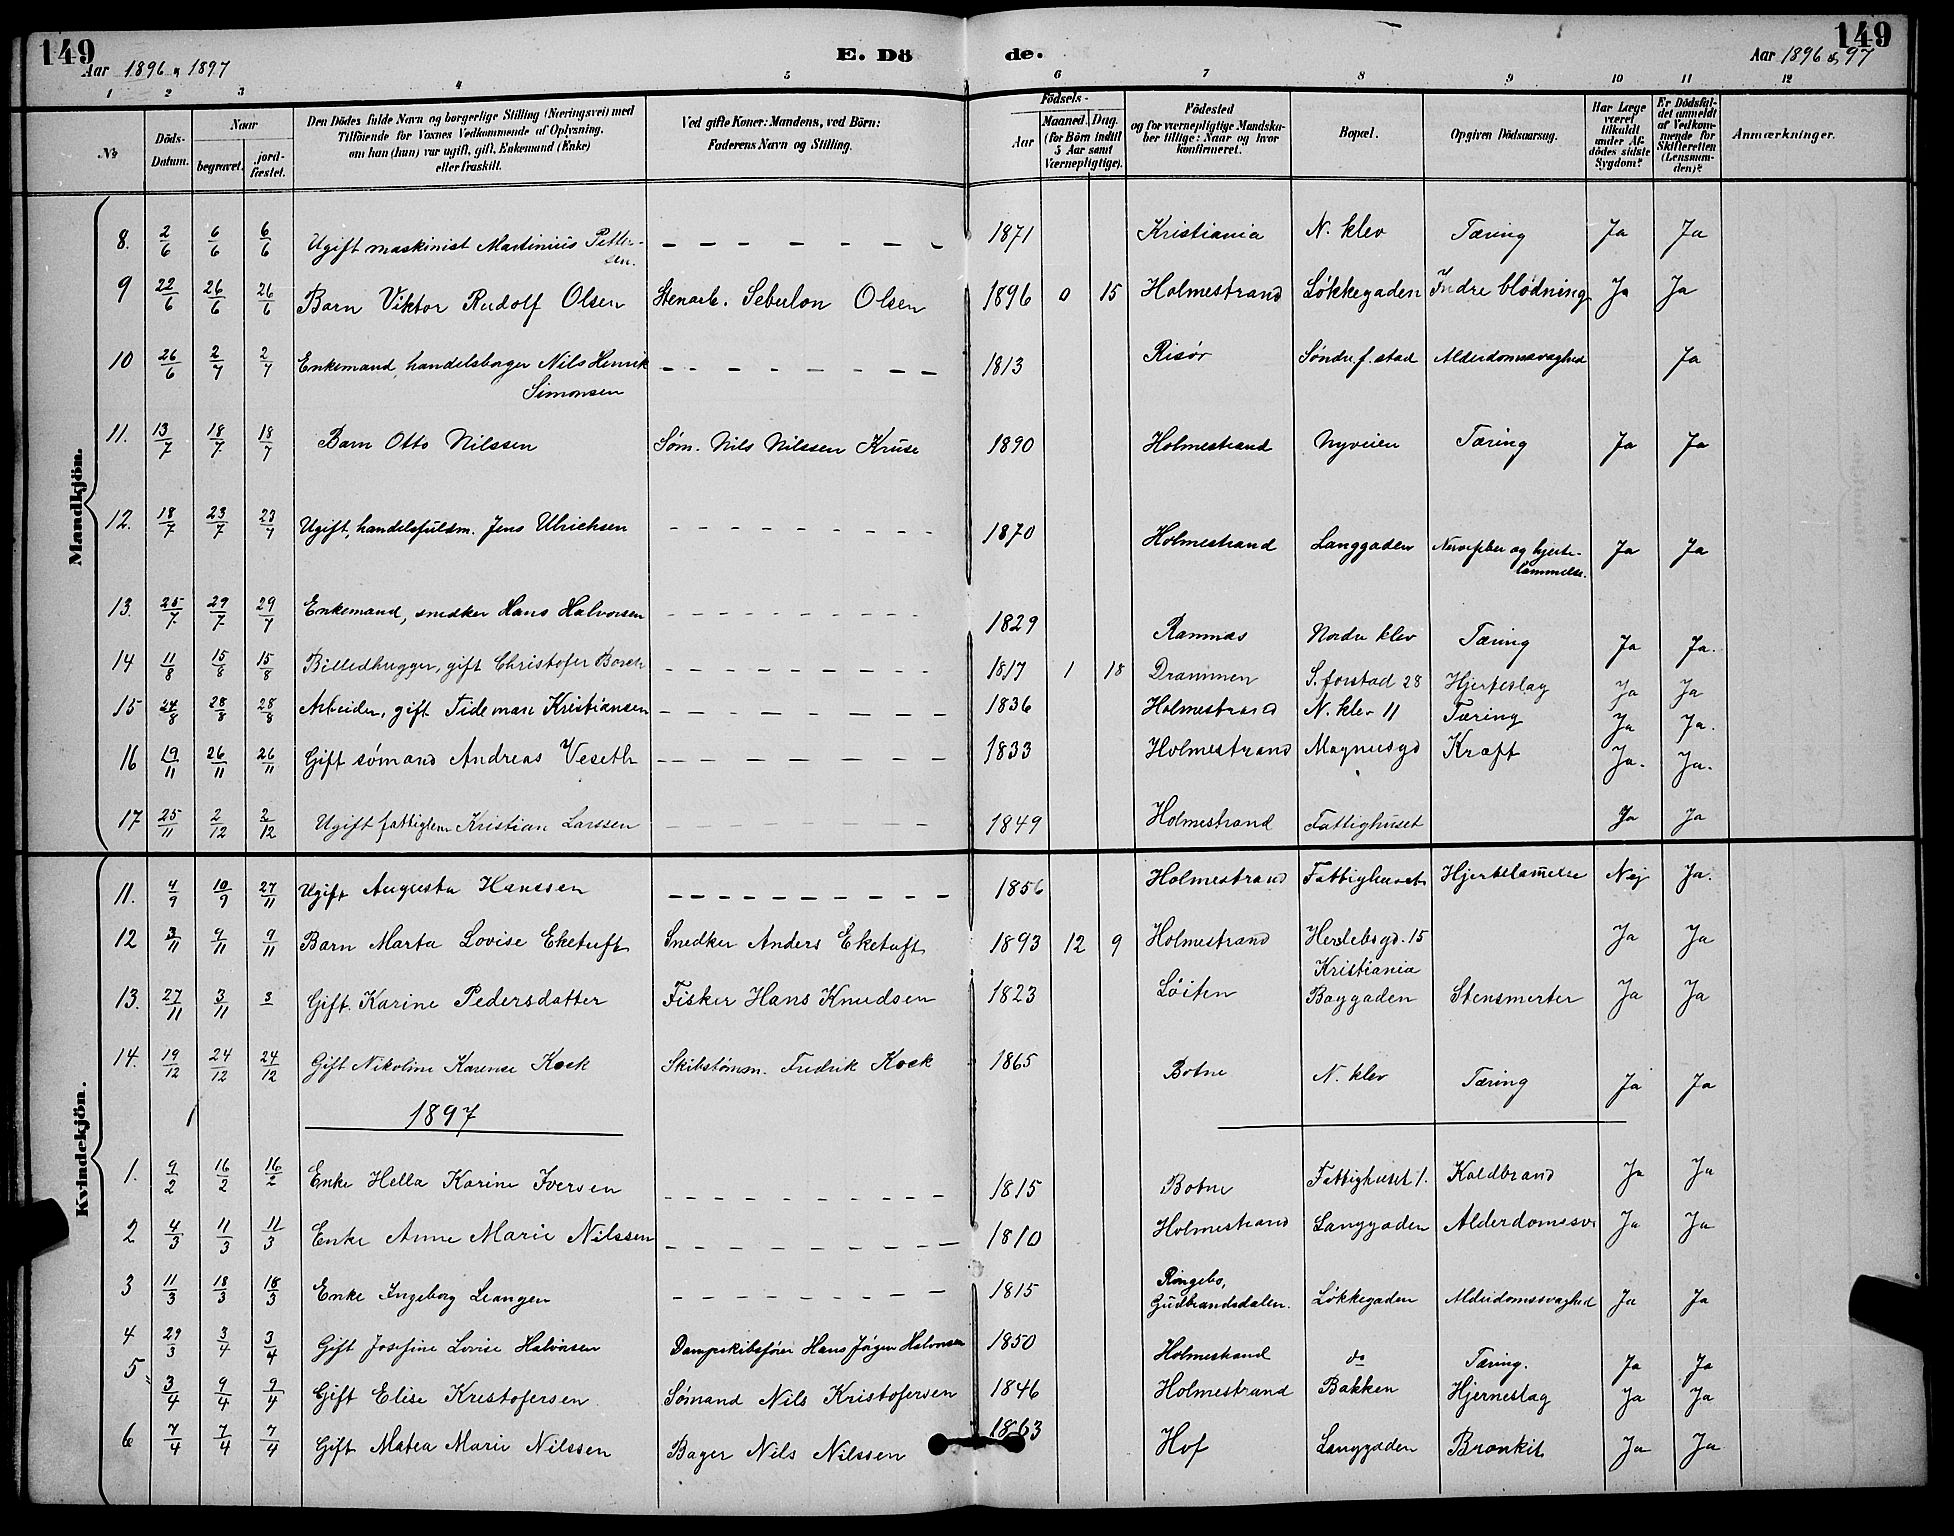 149
Aar 1896 & 1897
E. Dö
de.
149
Aar 1896 & 97
1 2 3 4 5 6 7 8 9 10 11 12
№
Döds-Datum.
Naar
begravet.
jordfæstet.
Den Dödes fulde Navn og borgerlige Stilling (Næringsvei) med
Tilföiende for Voxnes Vedkommende af Oplysning,
om han (hun) var ugift, gift, Enkemand (Enke)
eller fraskilt.
Ved gifte Koner: Mandens, ved Börn:
Faderens Navn og Stilling.
Födsels-
Aar
Maaned. Dag.
(for Börn indtil
5 Aar samt
Værnepligtige).
Födested
og for værnepligtige Mandskaber tillige: Naar og hvor
konfirmeret.
Bopæl.
Opgiven Dödsaarsag.
Har Læge
været
tilkaldt
under Afdödes sidste
Sygdom?
Er Dödsfaldet anmeldt
af Vedkommende for
Skifteretten
(Lensmanden)?
Anmærkninger.
Mandkjön.
8. 2/6 6/6 6/6 Ugift maskinist Martinius Pettersen. 1871 Kristiania N. klev Tæring Ja Ja
9 22/6 26/6 26/6 Barn Viktor Rudolf Olsen Stenarb. Seberlon Olsen 1896 0 15 Holmestrand Løkkegaden Indre blødning Ja Ja
10 26/6 2/7 2/7 Enkemand, handelsborger Nils Henrik Simonsen 1813 Risør Søndre f. stad Alderdomssvaghed Ja
11. 13/7 18/7 18/7 Barn Otto Nilssen Søm. Nils Nilssen Kruse 1890 Holmestrand Nyveien Tæring Ja Ja
12. 18/7 23/7 23/7 Ugift, handelsfuldm. Jens Ulrichsen 1870 Holmestrand Langgaden Nervefeber og hjertelammelse. Ja Ja
13. 25/7 29/7 29/7 Enkemand, snedker Hans Halvorsen 1829 Ramnæs Nordre klev Tæring Ja Ja.
14 11/8 15/8 15/8 Billedhugger, gift Christofer Borch 1817 1 18 Drammen S. forstad 28 Hjerteslag Ja Ja
15 24/8 28/8 28/8 Arbeider, gift Tidemare Kristiansen 1836 Holmestrand N. klev 11 Tæring Ja Ja.
16 19/11 26/11 26/11 Gift sømand Andreas Veseth 1833 Holmestrand Magnusgd Kræft Ja. Ja.
17 25/11 2/12 2/12 Ugift fattiglem Kristian Larssen 1849 Holmestrand Fattighuset Ja Ja
Kvindekjön.
11. 4/9 10/9 27/11 Ugift Augusta Hanssen 1856 Holmestrand Fattighuset Hjertelam̄else Nej Ja.
12 3/11 9/11 9/11 Barn Marta Lovise Eketuft Snedker Anders Eketuft 1893 12 9 Holmestrand Herslebsgd. 15 Kristiania Ja Ja
13. 27/11 3/11 3 Gift Karine Pedersdatter Fisker Hans Knudsen 1823 Løiten Baggaden Stensmerter Ja Ja
14. 19/12 24/12 24/12 Gift Nikoline Karense Kock Skibstømm. Fredrik Kock 1865 Botne N. klev Tæring Ja Ja
1897
1. 9/2 16/2 16/2 Enke Hella Karine Iversen 1815 Botne Fattighuset 1. Koldbrand Ja Ja
2 4/3 11/3 11/3 Enke Anne Marie Nilssen 1810 Holmestrand Langgaden Alderdomssv Ja Ja
3 11/3 18/3 18/3 Enke Ingeborg Leangen 1815 Ringebo, Gudbrandsdalen. Løkkegaden Alderdomssvaghed Ja Ja
4 29/3 3/4 3/4 Gift Josefine Lovise Halvorsen Dampskibsfører Hans Jørgen Halvorsen 1850 Holmestrand do Tæring. Ja Ja
5 3/4 9/4 9/4 Gift Elise Kristofersen Sømand Nils Kristofersen 1846 Holmestrand Bakken Hjerneslag Ja Ja
6 7/4 7/4 7/4 Gift Matea Marie Nilssen Bager Nils Nilssen 1863 Hof Langgaden Bronkit Ja Ja